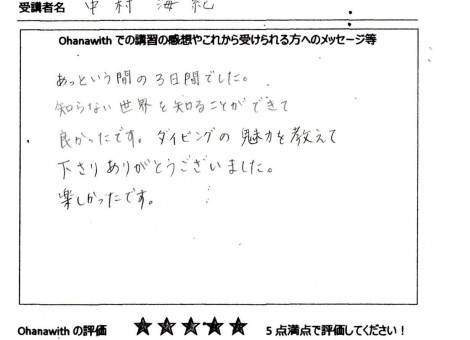 受講者名 中村 海紀
Ohanawith での講習の感想やこれから受けられる方へのメッセージ等
あっという間の3日間でした。
知らない世界を知ることができて
良かったです。ダイビングの魅力を教えて
下さりありがとうございました。
楽しかったです。
Ohanawith の評価 ★★★★★ 5点満点で評価してください！